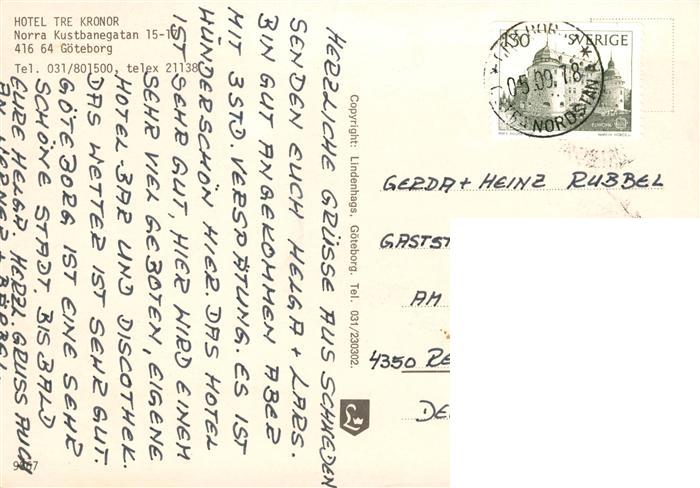 HOTEL TRE KRONOR
Norra Kustbanegatan 15-17
416 64 Göteborg
Tel. 031/801500, telex 21138
HERZLICHE GRÜSSE AUS SCHWEDEN
SENDEN EUCH HELGA + LARS.
BIN GUT ANGEKOMMEN ABER
MIT 3 STD. VERSPÄTUNG. ES IST
WUNDERSCHÖN HIER. DAS HOTEL
IST SEHR GUT, HIER WIRD EINEM
SEHR VIEL GEBOTEN, EIGENE
HOTEL-BAR UND DISCOTHEK.
DAS WETTER IST SEHR GUT.
GÖTEBORG IST EINE SEHR
SCHÖNE STADT. BIS BALD
EURE HELGA HERZL. GRUSS AUCH
AN WERNER + BÄRBEL.
Copyright: Lindenhags, Göteborg. Tel. 031/230302.
L
130 SVERIGE
NORDSTAN
EUROPA
GERDA + HEINZ RUBBEL
GASTST
AM
4350 RE
DE